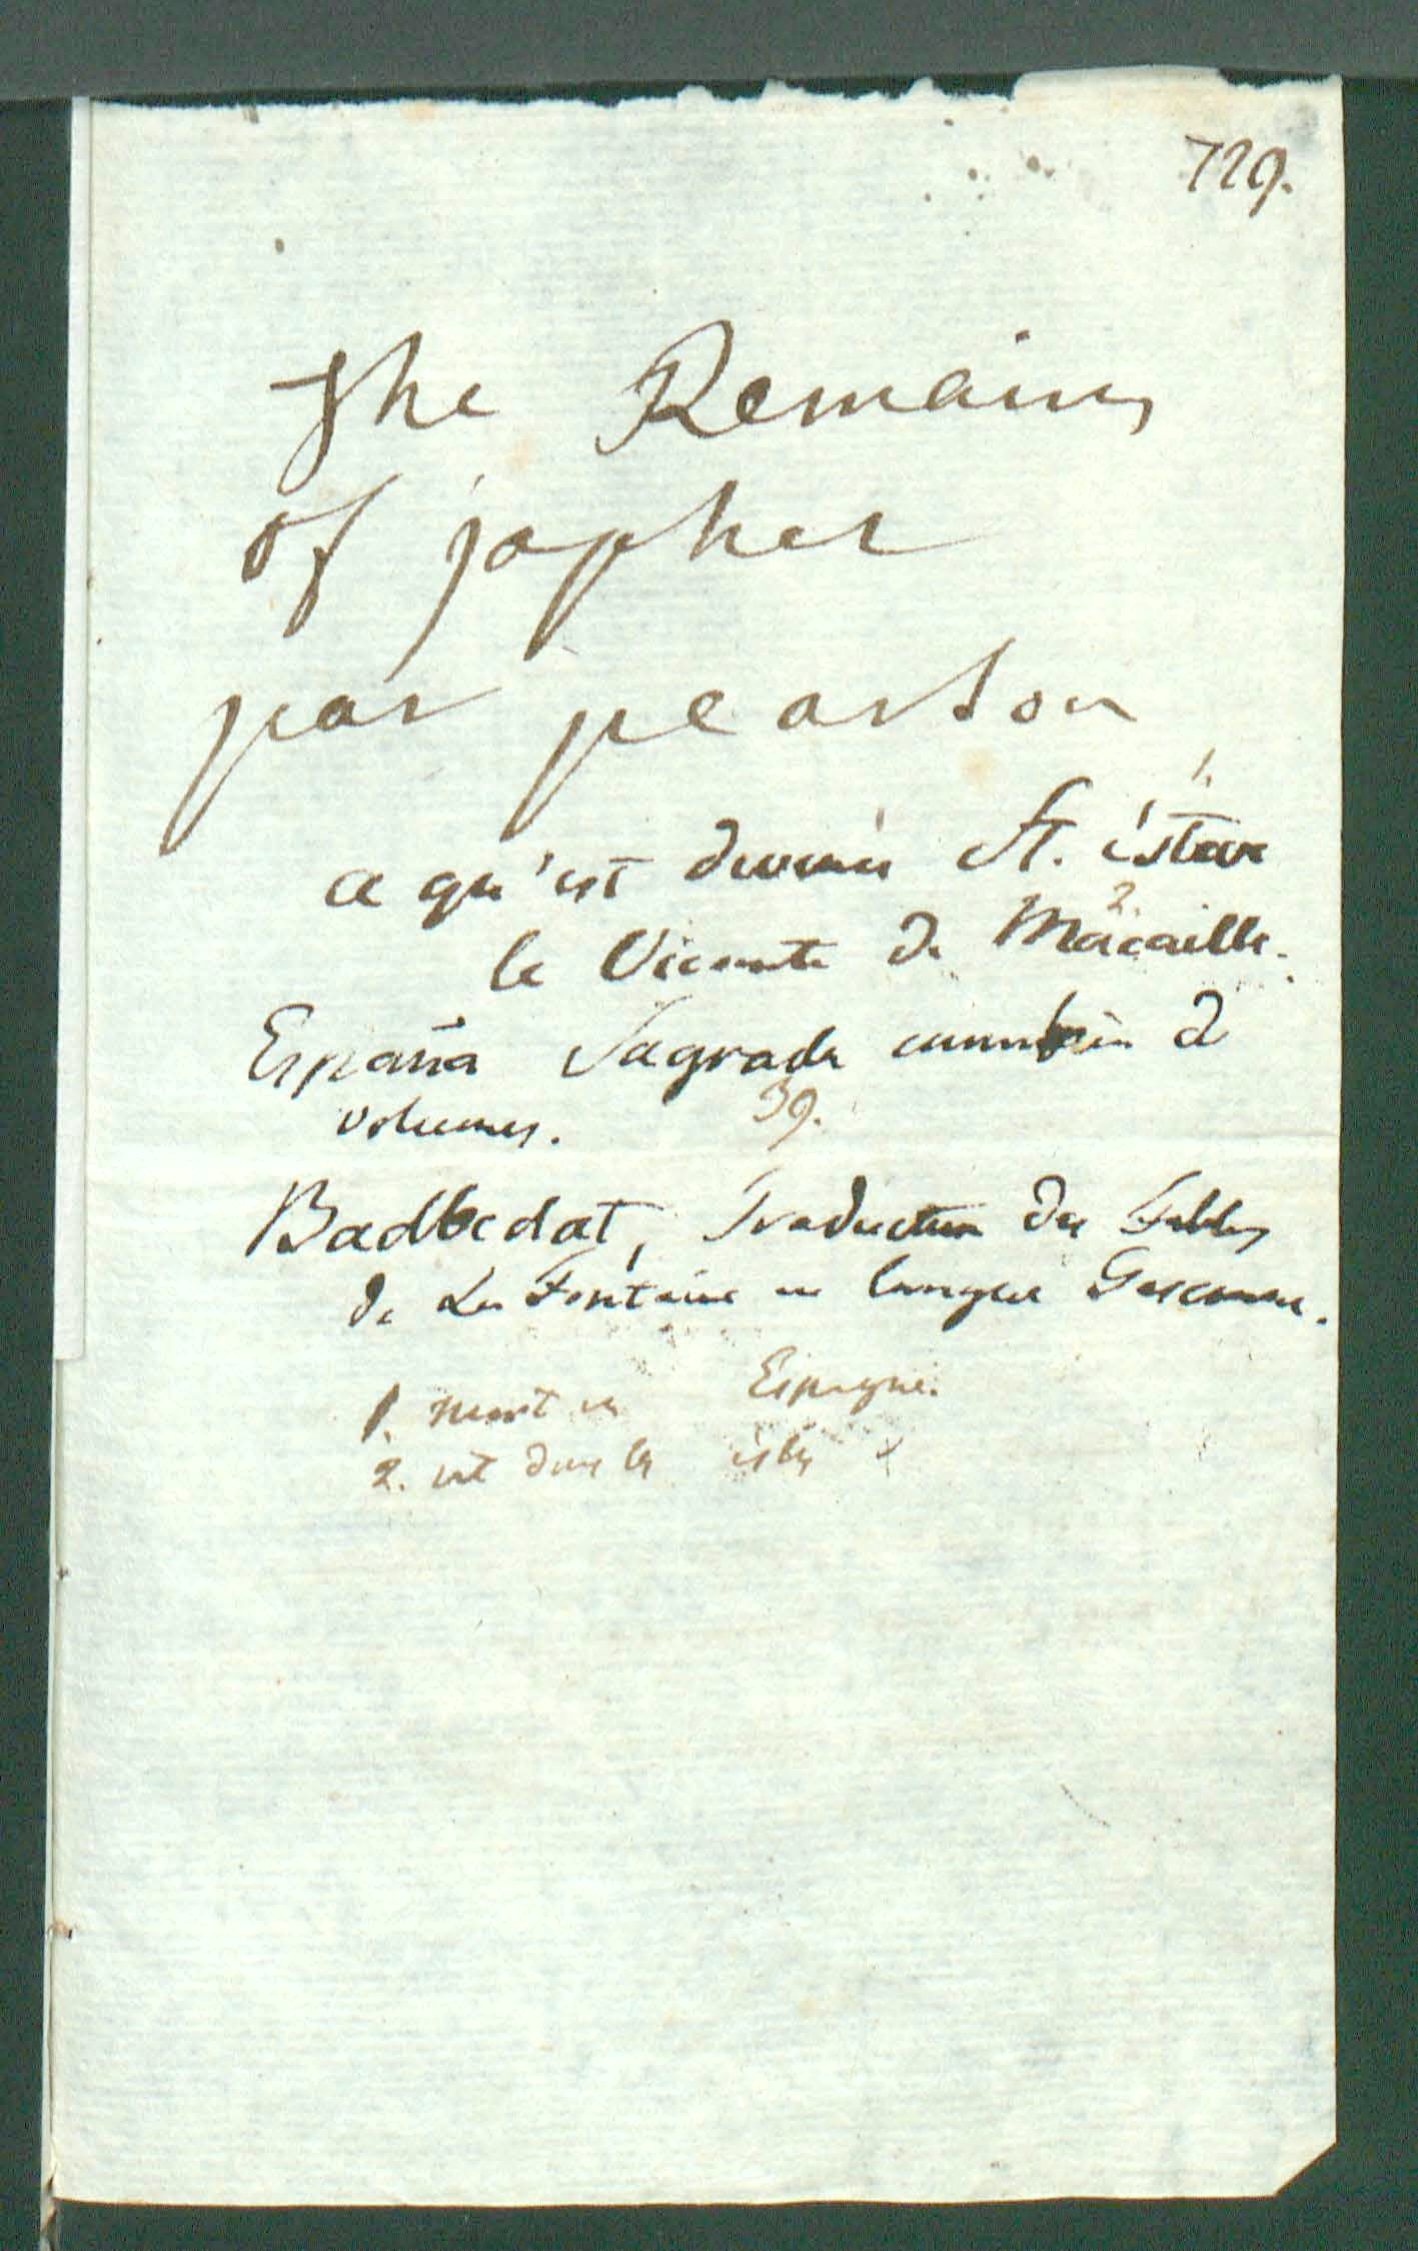 729.
The Remains
of japhet
par pearson
1.
ce qu'est devenu St. estave
2.
le Vicomte de Macaille.
España Sagrada combien de
volumes. 39.
Badbedat, Traduction des Fables
de La Fontaine en langue Gasconne.
1. mort en Espagne.
2. est dans les isles